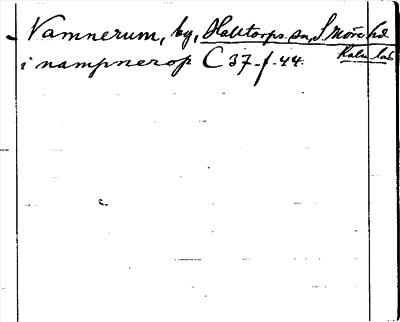 Vamnerum, by, Halltorps sn, S. Möre hd.
Kalm. län
i nampnerop C 37 f. 44.